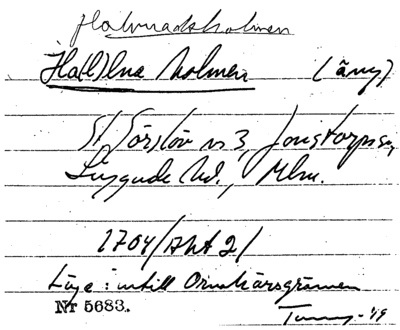 Halvnadsholmen
Ha(l)lna holmen (äng)
St Sörslöv n 3, Jonstorps sn,
Luggude hd., Mlm.
1704/Akt 2/
Läge: intill Ornakärsgränsen
Nr 5683. -49